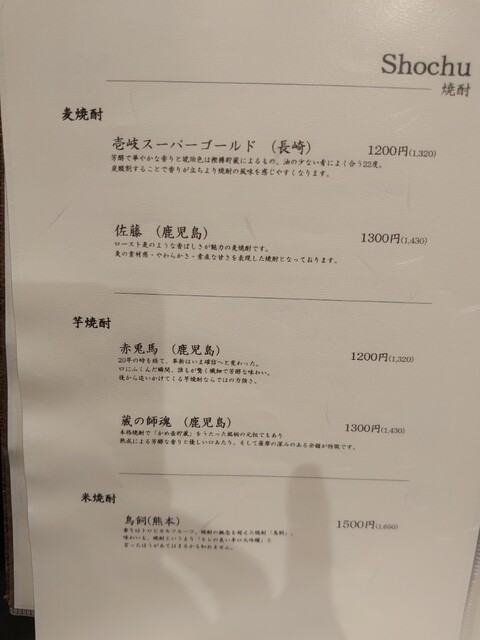 Shochu
焼酎
麦焼酎
壱岐スーパーゴールド (長崎) 1200円(1,320)
芳醇で華やかな香りと琥珀色は樫樽貯蔵によるもの。油の少ない肴によく合う22度。
炭酸割することで香りが立ちより焼酎の風味を感じやすくなります。
佐藤 (鹿児島) 1300円(1,430)
ロースト麦のような香ばしさが魅力の麦焼酎です。
麦の素材感・やわらかさ・素直な甘さを表現した焼酎となっております。
芋焼酎
赤兎馬 (鹿児島) 1200円(1,320)
20年の時を経て、革新はいま確信へと変わった。
口にふくんだ瞬間、誰もが驚く繊細で芳醇な味わい。
後から追いかけてくる芋焼酎ならではの力強さ。
蔵の師魂 (鹿児島) 1300円(1,430)
本格焼酎で「かめ壺貯蔵」をうたった銘柄の元祖でもあり
熟成による芳醇な香りと優しい口あたり、そして薩摩の深みのある余韻が特徴です。
米焼酎
鳥飼(熊本) 1500円(1,650)
香りはトロピカルフルーツ。焼酎の概念を超えた焼酎「鳥飼」。
味わいも、焼酎というより「キレの良い辛口大吟醸」と
言ったほうがあてはまるかも知れません。